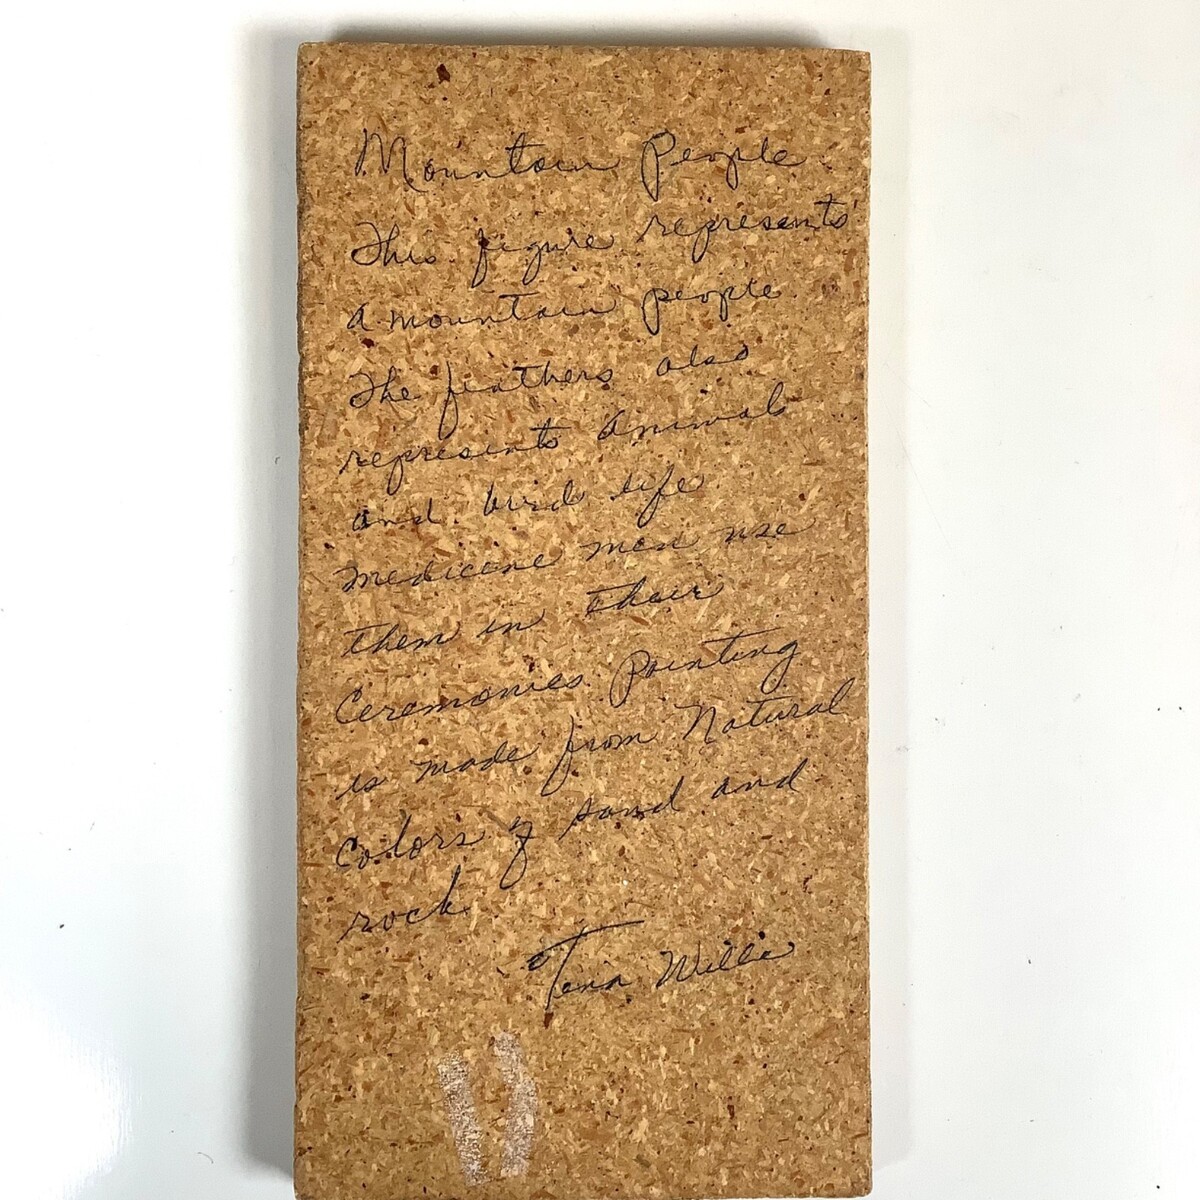 Mountain People
This figure represents
a mountain people.
The feathers also
represents animals
and bird life.
Medicine men use
them in their
Ceremonies. Painting
is made from Natural
Colors of sand and
rock.
Tena Willie